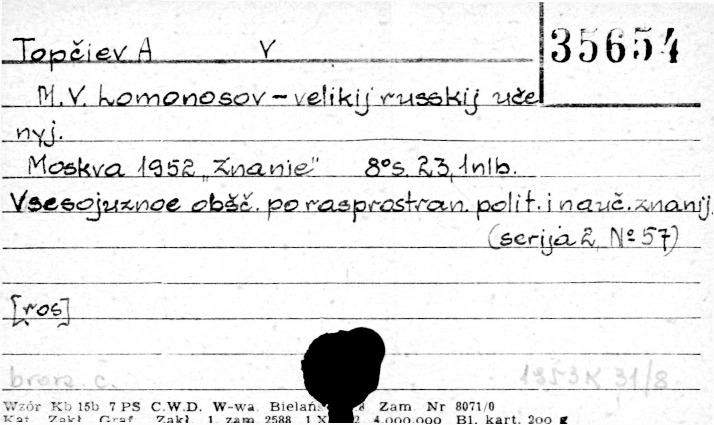 Topčiev A V 35654
M.V. Lomonosov – velikij russkij uče
nyj.
Moskva 1952 „Znanie" 8° s. 23, 1 nlb.
Vsesojuznoe obšč. po rasprostran. polit. i nauč. znanij
(serija 2, № 57)
[ros]
brosz. c. 1953 K 31/8
Wzór Kb 15b 7 PS C.W.D. W-wa Zam. Nr 8071/0
Kat. Zakł. Graf. Zakł. 1. zam 2588 4.000.000 Bl. kart. 200 g